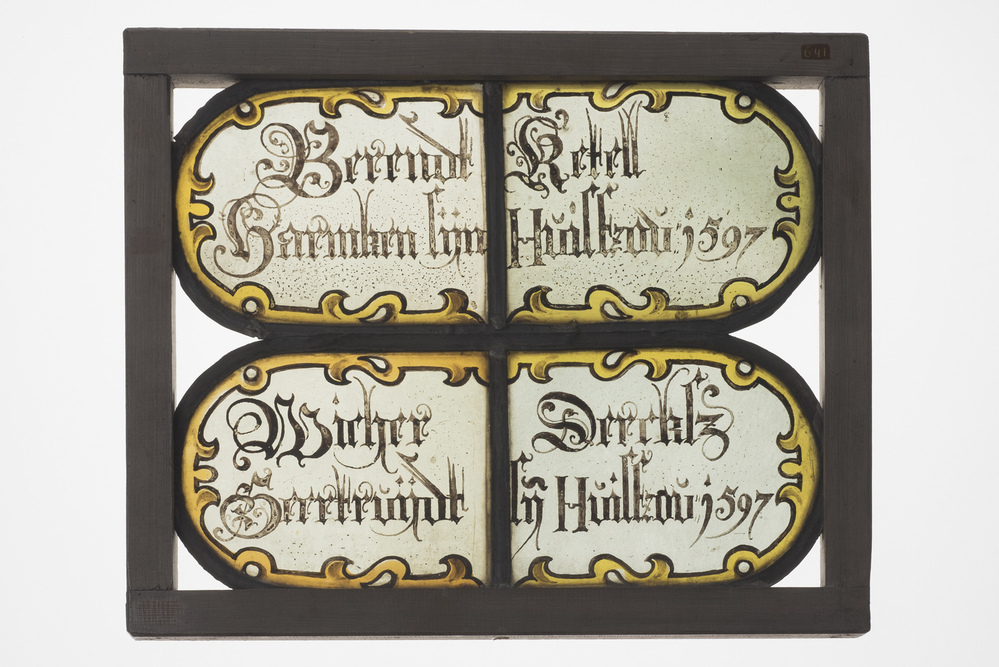 Berendt Ketell
Harmken sijn Huisfrou 1597
Wicher Dercksz
Geertruijdt sij̄ Huisfrou 1597
641